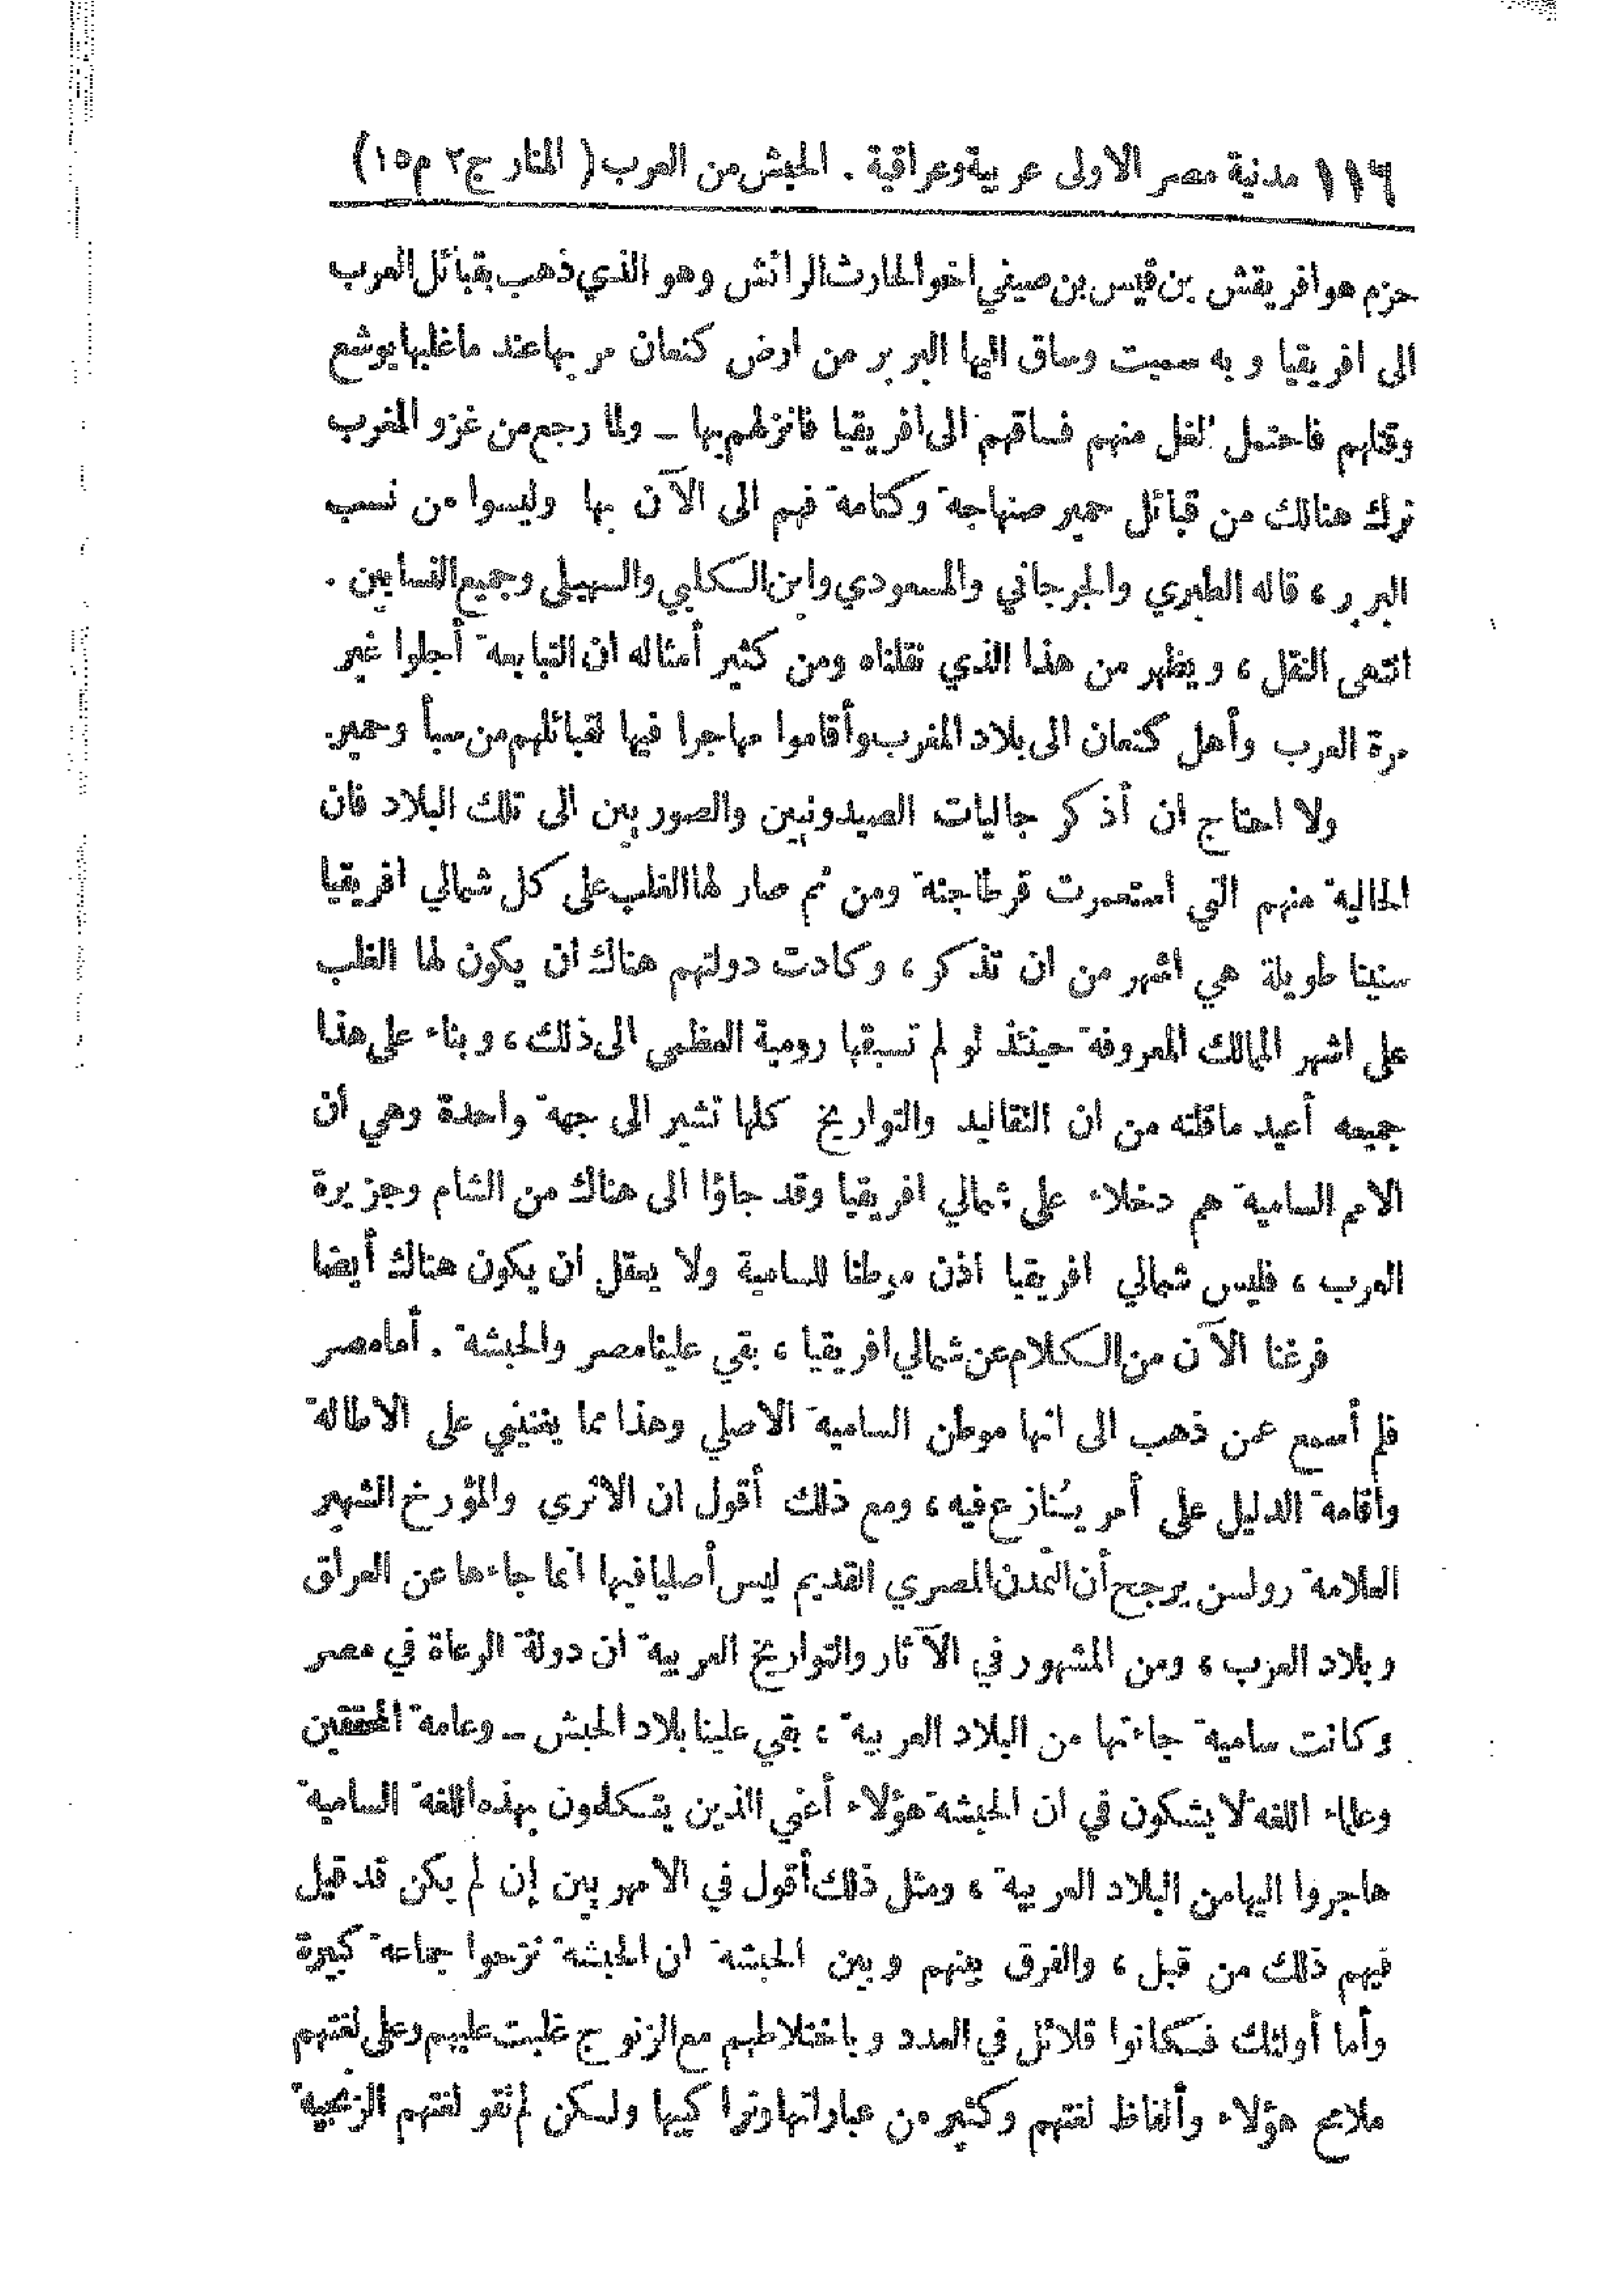 ١١٦ مدنية مصر الاولى عربية وعراقية . الحبش من العرب ( المنار ج٢ م١٥)
حزم هو افريقش بن قيس بن صيفي اخو الحارث الرائش وهو الذي ذهب بقبائل العرب
الى افريقيا وبه سميت وساق اليها البربر من ارض كنعان مر بها عند ما غلبها يوشع
وقتلهم فاحتمل الفل منهم فساقهم الى افريقيا فانزلهم بها ــ ولما رجع من غزو المغرب
ترك هنالك من قبائل حمير صنهاجة وكتامة فهم الى الآن بها وليسوا من نسب
البربر ، قاله الطبري والجرجاني والمسعودي وابن الكلبي والسهيلي وجميع النسابين .
انتهى النقل ، ويظهر من هذا الذي نقلناه ومن كثير أمثاله ان التبابعة أجلوا غير
مرة العرب وأهل كنعان الى بلاد المغرب وأقاموا مهاجرا فيها لقبائلهم من سبأ وحمير.
ولا احتاج ان أذكر جاليات الصيدونيين والصوريين الى تلك البلاد فان
الجالية منهم التي استعمرت قرطاجنة ومن ثم صار لها الغلب على كل شمالي افريقيا
سنينا طويلة هي اشهر من ان تذكر ، وكادت دولتهم هناك ان يكون لها الغلب
على اشهر الممالك المعروفة حينئذ لو لم تسبقها رومية العظمى الى ذلك ، وبناء على هذا
جميعه أعيد ماقلته من ان التقاليد والتواريخ كلها تشير الى جهة واحدة وهي ان
الامم السامية هم دخلاء على شمالي افريقيا وقد جاؤا الى هناك من الشام وجزيرة
العرب ، فليس شمالي افريقيا اذن موطنا للسامية ولا يعقل ان يكون هناك أيضا
فرغنا الآن من الكلام عن شمالي افريقيا ، بقي علينا مصر والحبشة . أما مصر
فلم أسمع عمن ذهب الى انها موطن السامية الاصلي وهذا مما يغنيني على الاطالة
وأقامة الدليل على أمر يُنازع فيه ، ومع ذلك أقول ان الاثري والمؤرخ الشهير
العلامة رولسن يرجح أن التمدن المصري القديم ليس أصليا فيها انما جاءها عن العراق
وبلاد العرب ، ومن المشهور في الآثار والتواريخ العربية ان دولة الرعاة في مصر
وكانت سامية جاءتها من البلاد العربية ، بقي علينا بلاد الحبش ــ وعامة المحققين
وعلماء اللغة لا يشكون في ان الحبشة هؤلاء أعني الذين يتكلمون بهذه اللغة السامية
هاجروا اليها من البلاد العربية ، ومثل ذلك أقول في الامهريين إن لم يكن قد قيل
فيهم ذلك من قبل ، والفرق بينهم وبين الحبشة ان الحبشة نزحوا جماعة كبيرة
وأما أولئك فكانوا قلائل في العدد وباختلاطهم مع الزنوج غلبت عليهم وعلى لغتهم
ملامح هؤلاء وألفاظ لغتهم وكثير من عباراتها وتراكيبها ولكن لم تقو لغتهم الزنجية